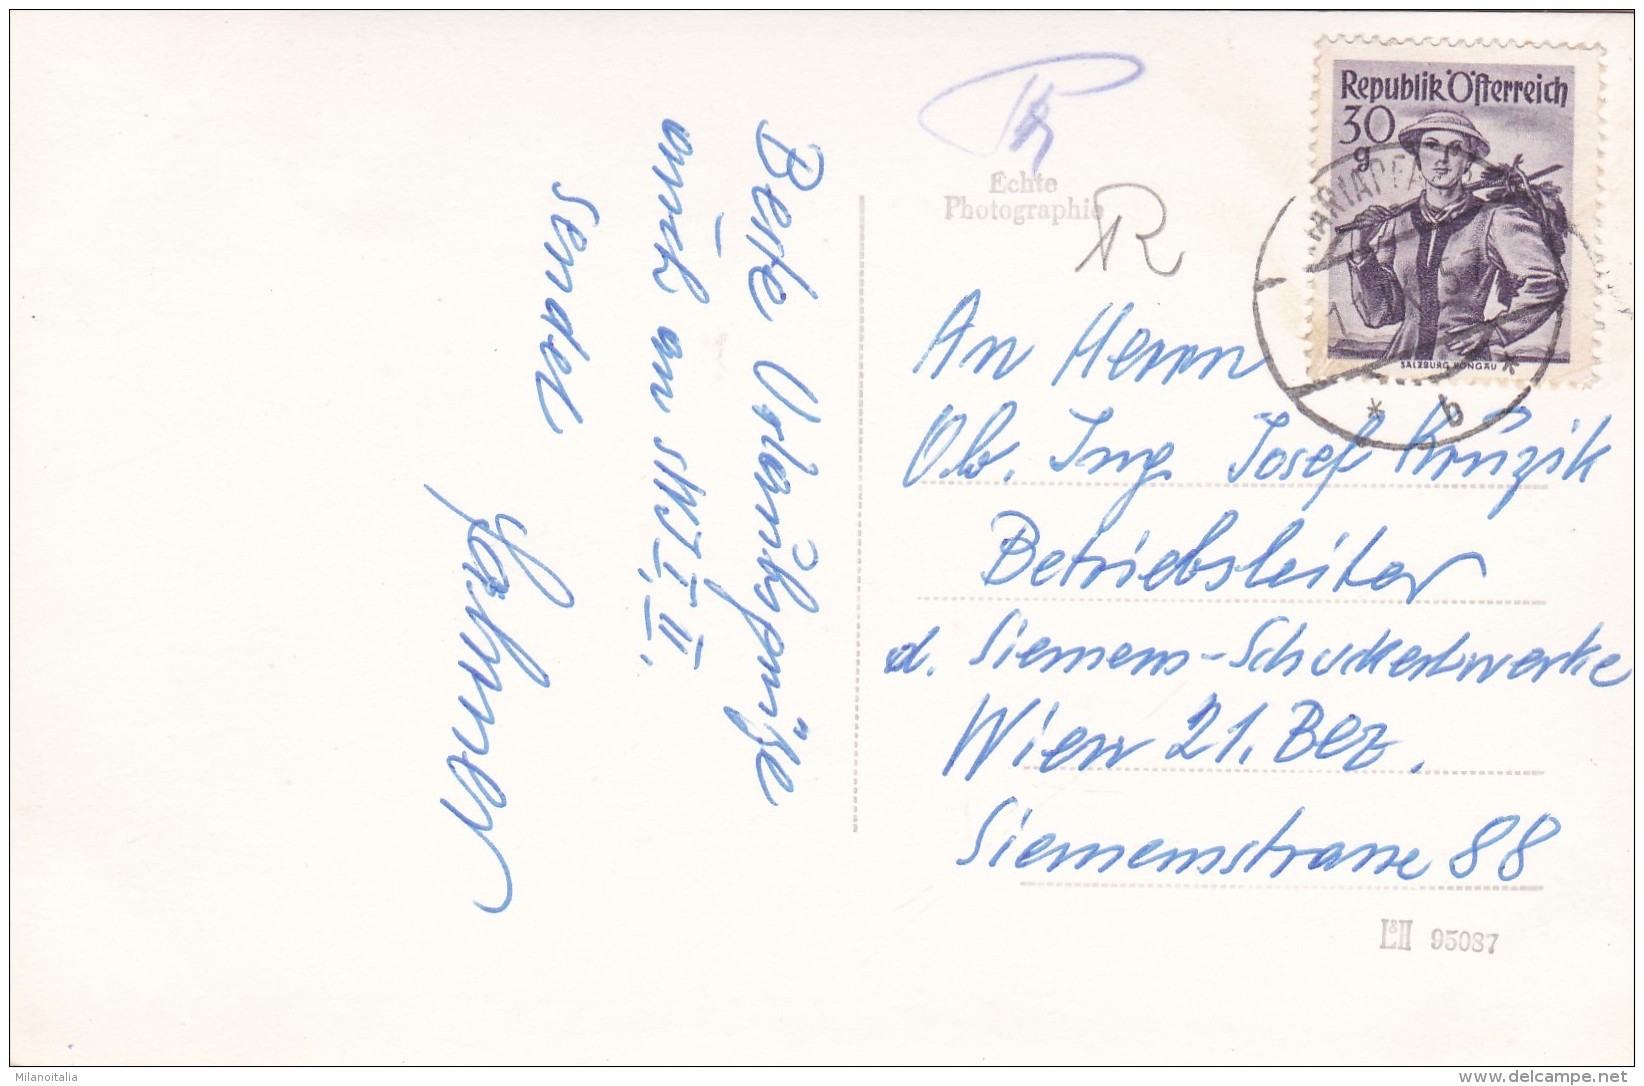 Beste Urlaubsgrüße
auch an MJ I, II.
sendet
Lahner
Echte
Photographie
R
Republik Österreich
30
g
SALZBURG PONGAU
MARIAPFARR
* b *
An Herrn
Ob. Ing. Josef
Betriebsleiter
d. Siemens-Schuckertwerke
Wien 21. Bez.
Siemensstrasse 88
L&H 95087
Milanoitalia
delcampe.net